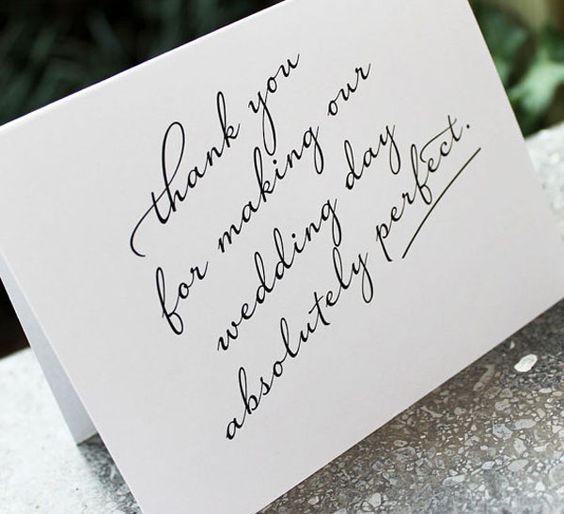 thank you
for making our
wedding day
absolutely perfect.